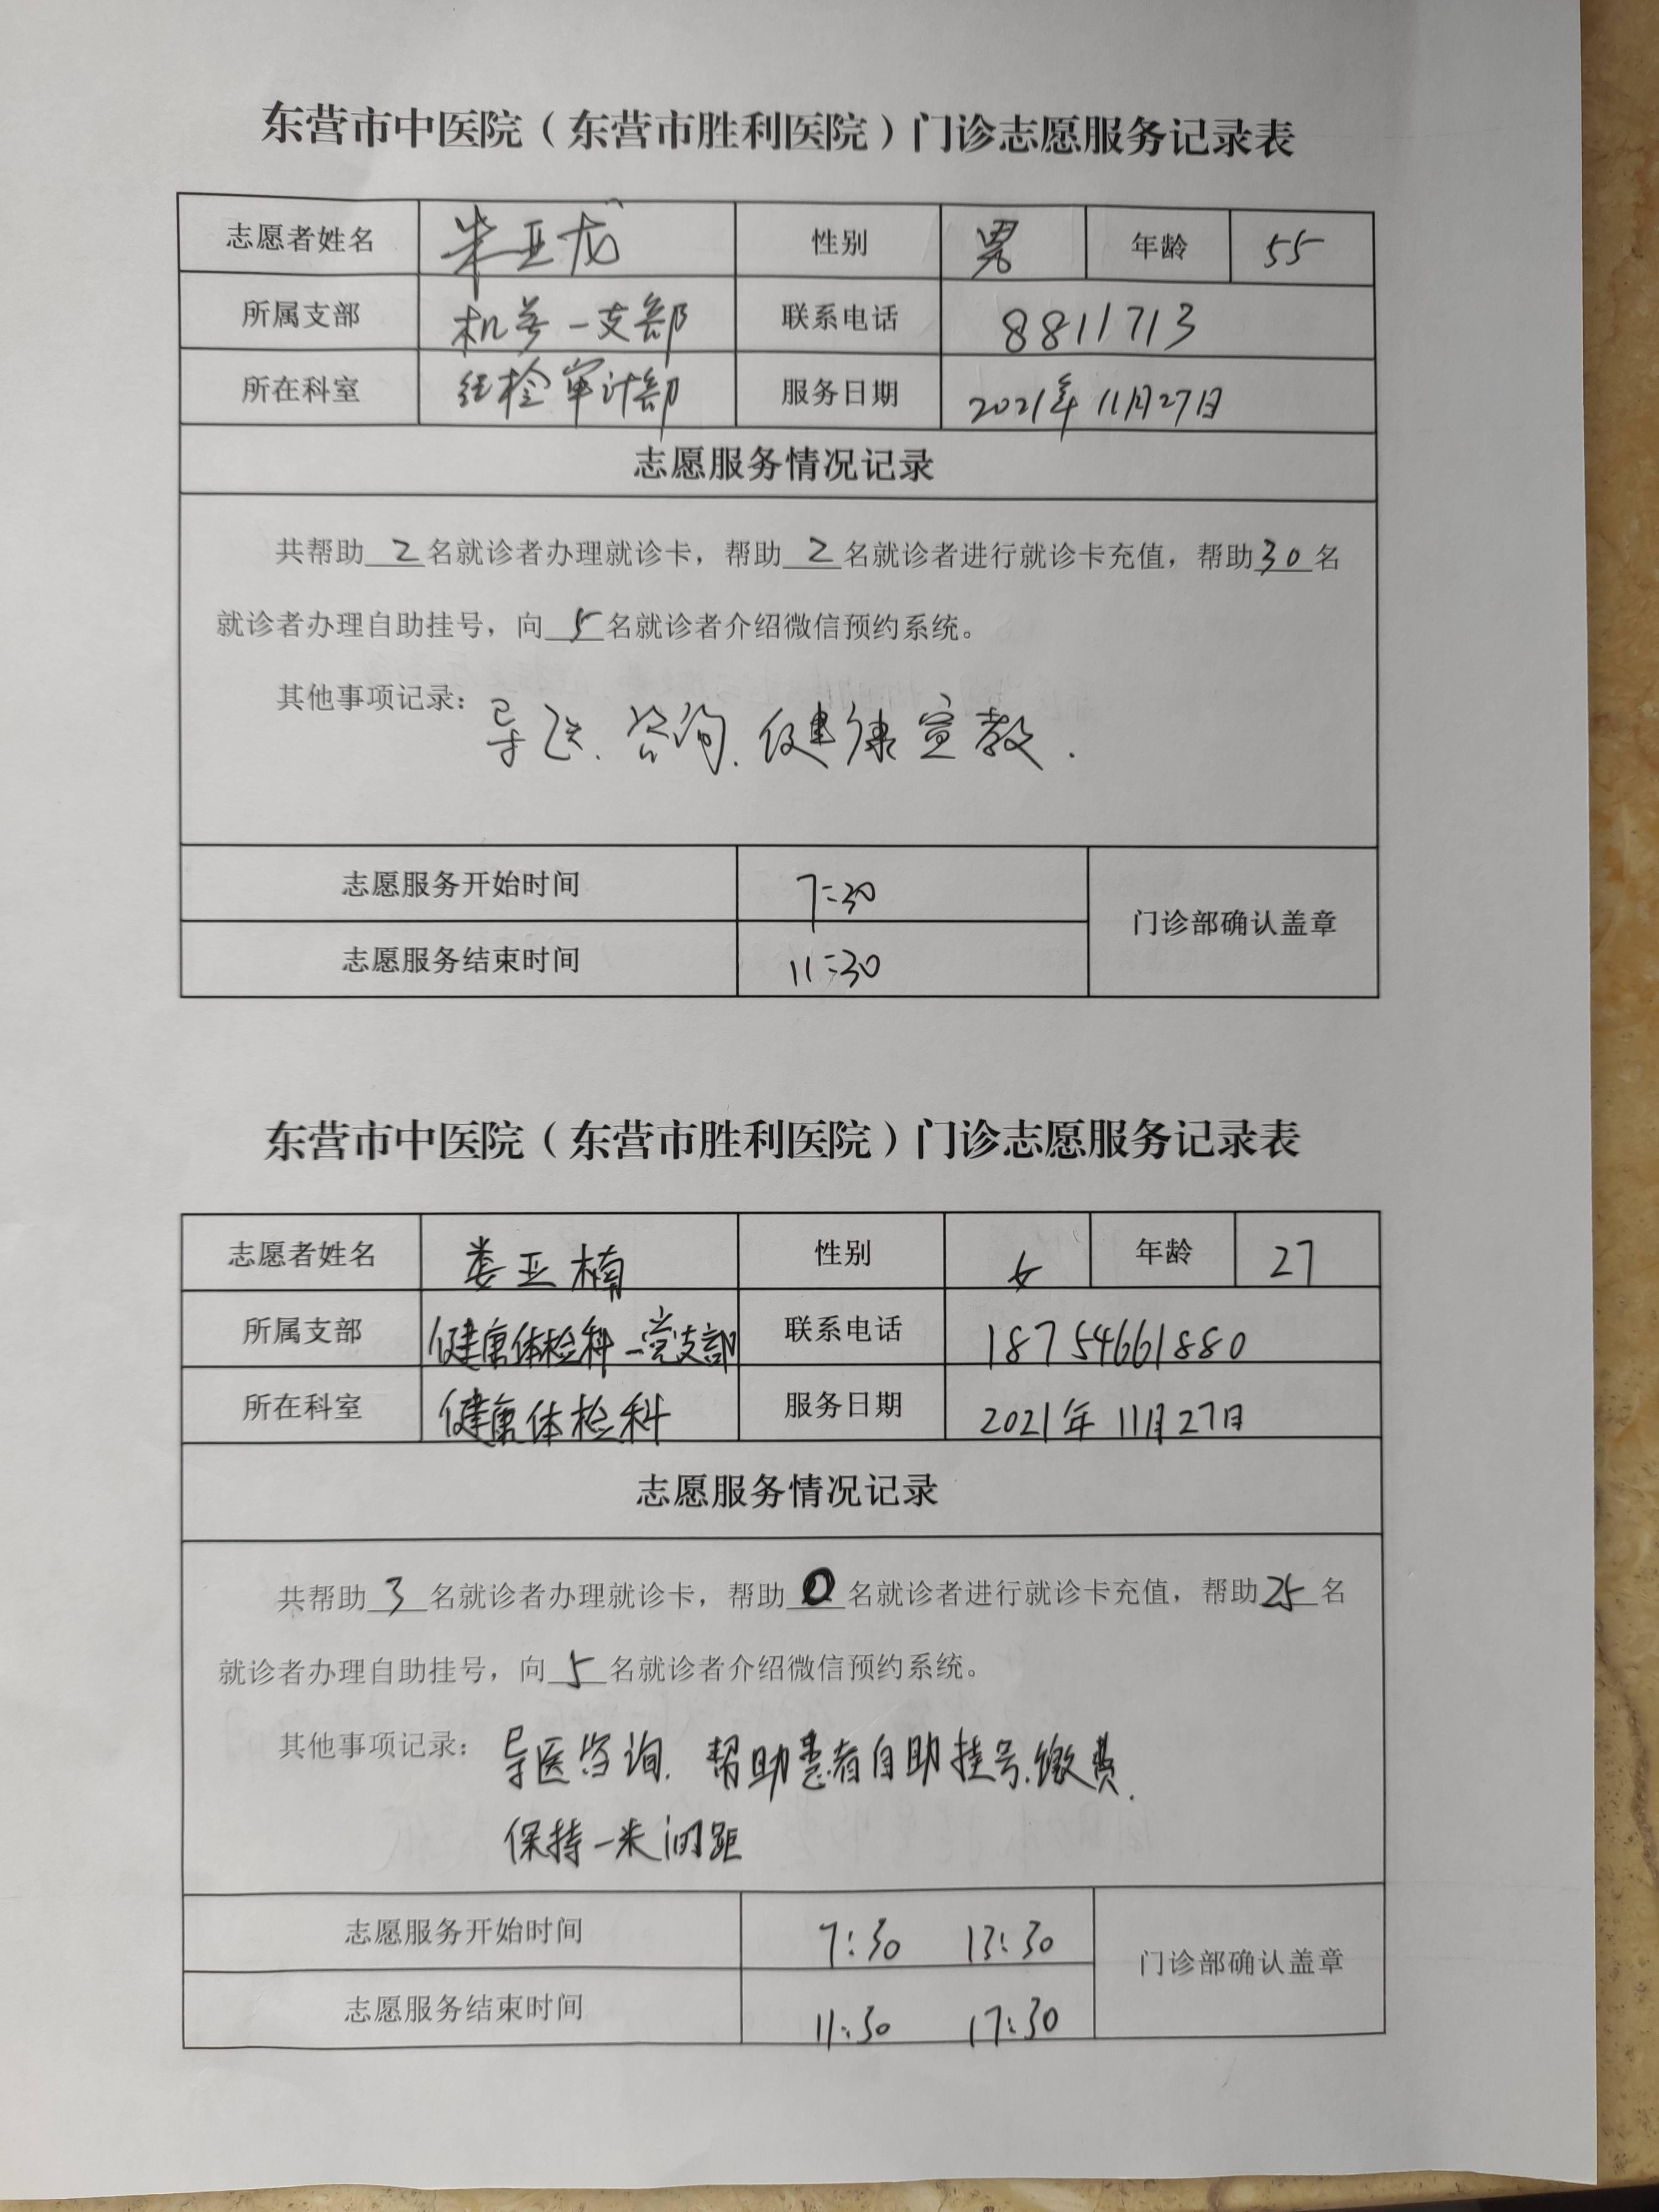 东营市中医院（东营市胜利医院）门诊志愿服务记录表
志愿者姓名 朱亚龙 性别 男 年龄 55
所属支部 机关一支部 联系电话 8811713
所在科室 纪检审计部 服务日期 2021年11月27日
志愿服务情况记录
共帮助2名就诊者办理就诊卡，帮助2名就诊者进行就诊卡充值，帮助30名
就诊者办理自助挂号，向5名就诊者介绍微信预约系统。
其他事项记录：导医、咨询、健康宣教.
志愿服务开始时间 7:30
门诊部确认盖章
志愿服务结束时间 11:30
东营市中医院（东营市胜利医院）门诊志愿服务记录表
志愿者姓名 娄亚楠 性别 女 年龄 27
所属支部 健康体检科一党支部 联系电话 18754661880
所在科室 健康体检科 服务日期 2021年11月27日
志愿服务情况记录
共帮助3名就诊者办理就诊卡，帮助0名就诊者进行就诊卡充值，帮助25名
就诊者办理自助挂号，向5名就诊者介绍微信预约系统。
其他事项记录：导医咨询.帮助患者自助挂号.缴费.
保持一米间距
志愿服务开始时间 7:30 13:30
门诊部确认盖章
志愿服务结束时间 11:30 17:30